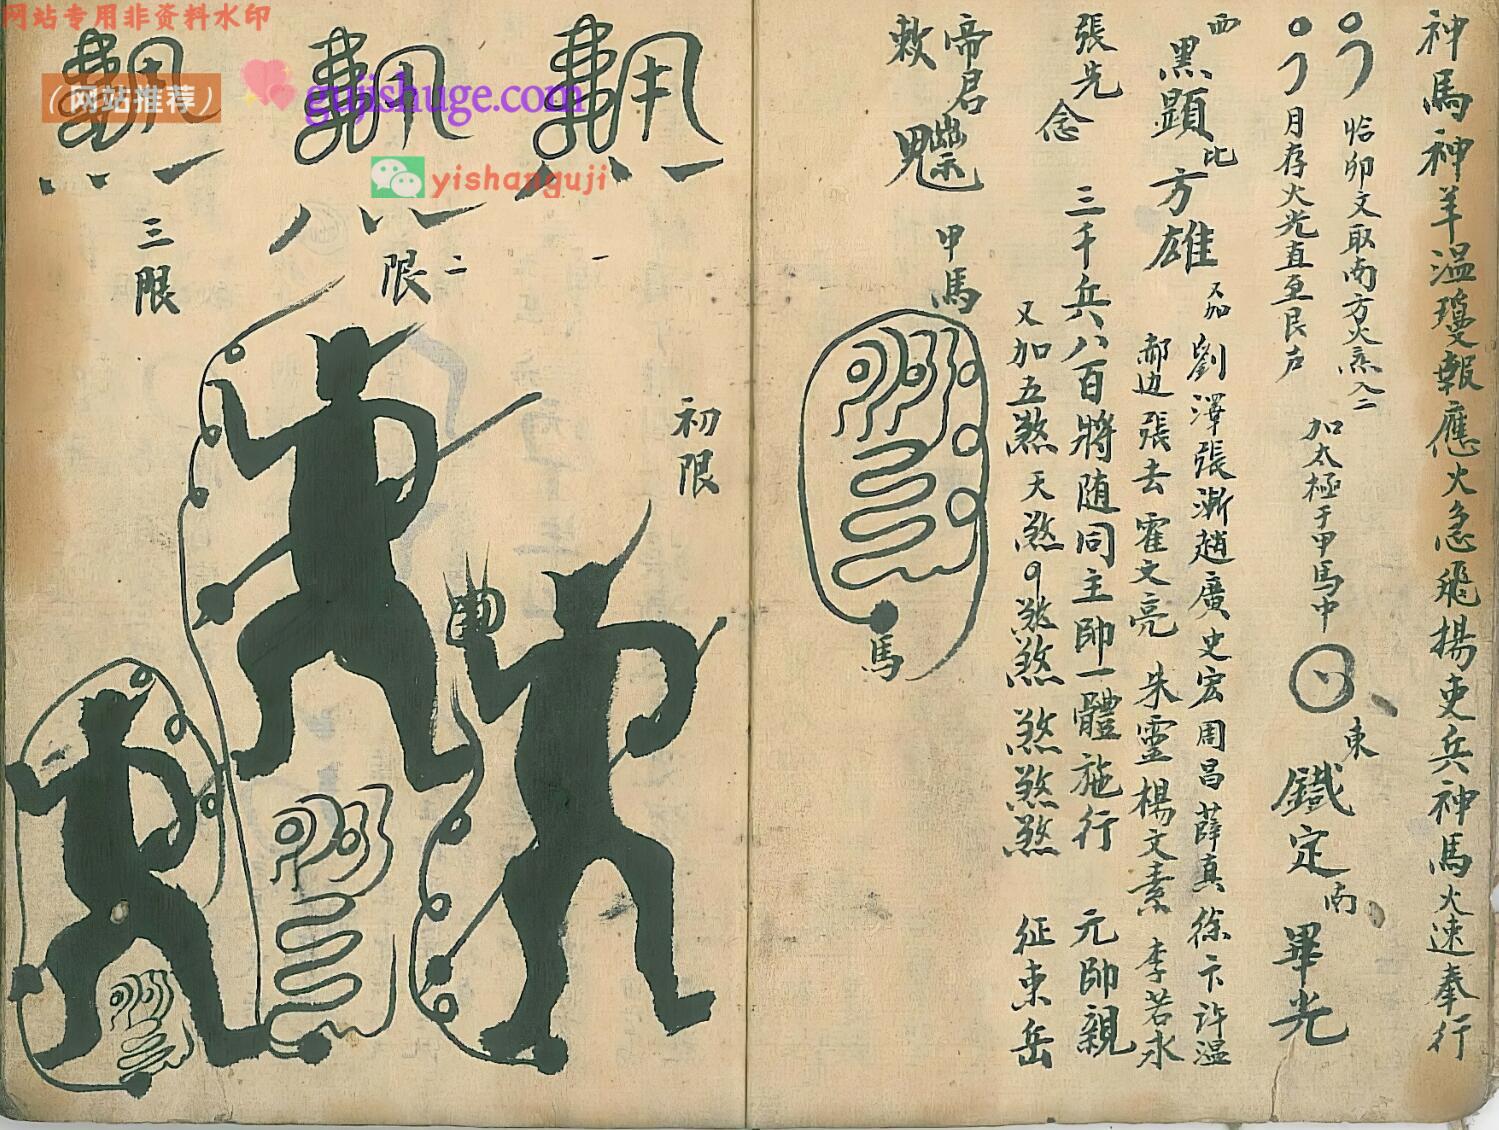 神馬神羊溫瓊報應火急飛揚吏兵神馬火速奉行
卯文取南方火
月存火光直至艮户
加太極于甲馬中
東 鐵定 南 畢光
西 黑顕 北 方雄
又加 劉澤張漸趙廣史宏周昌薛真徐卞許溫
郝边張去霍文亮 朱靈楊文素 李若水
張先 念 三千兵八百將随同主帥一體施行 元帥親
又加五煞 天煞 煞煞 煞煞煞 征東岳
帝君
敕
甲馬
馬
初限
一
二限
三限
网站专用非资料水印
(网站推荐)
gujishuge.com
yishanguji